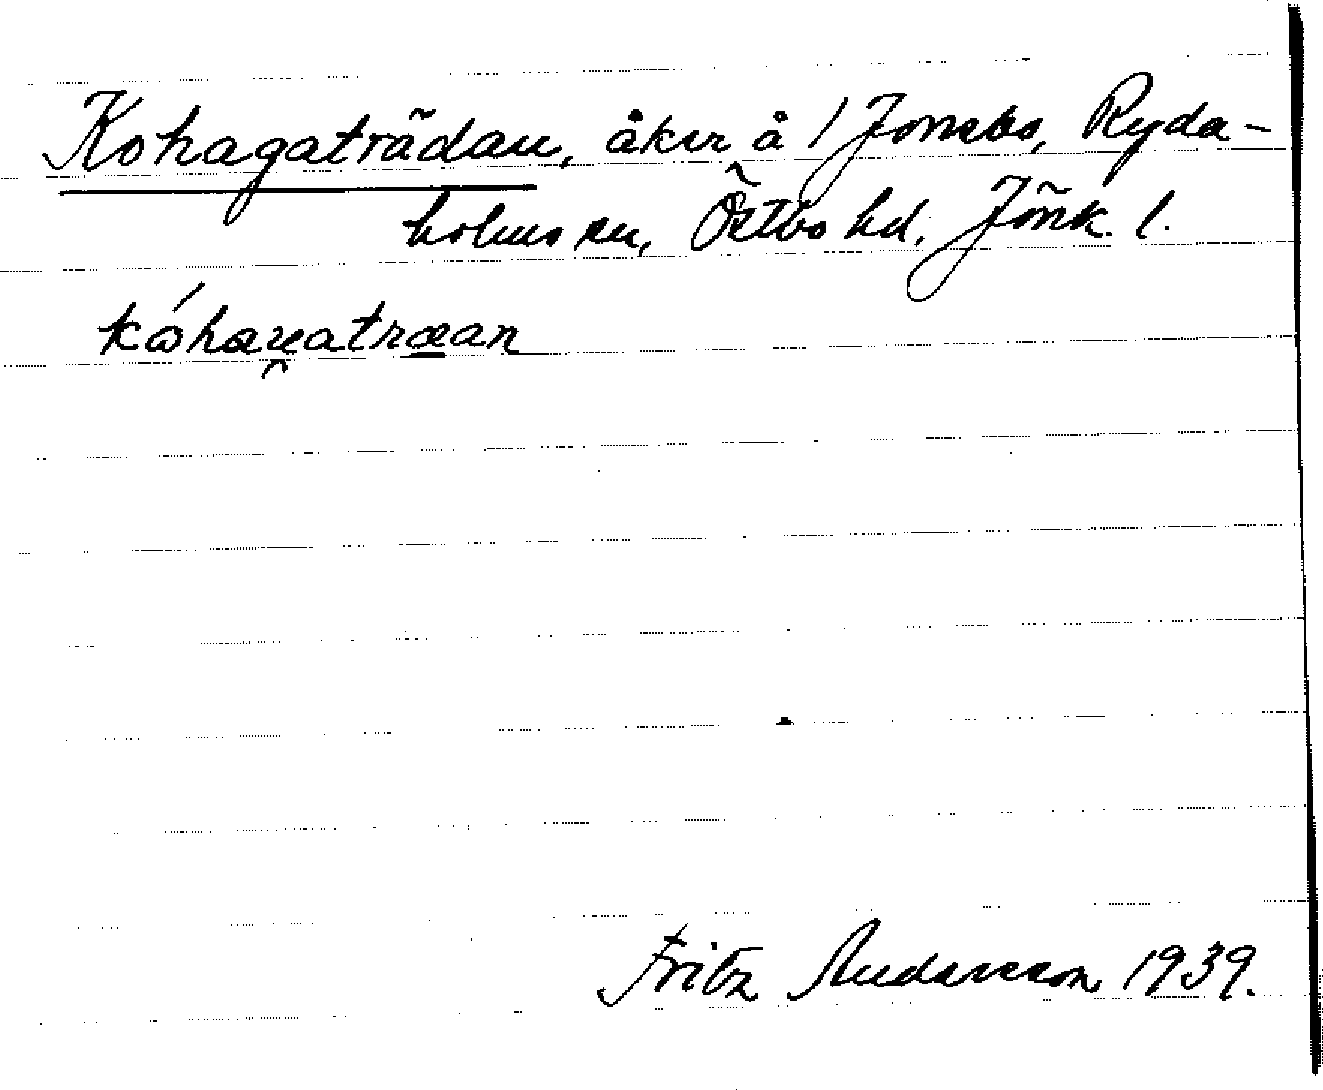 Kohagaträdan, åker å 1 Jonsbo, Ryda-
holms sn, Östbo hd, Jönk. l.
Fritz Andersson 1939.